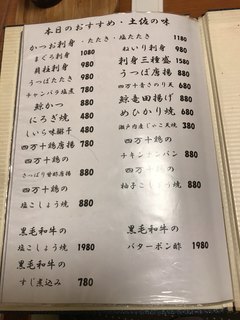 本日のおすすめ・土佐の味
かつお刺身・たたき・塩たたき 1180
まぐろ刺身 1080
貝柱刺身 980
うつぼたたき 980
チャンバラ塩煮 780
鯨かつ 880
にろぎ焼 480
しいら味醂干 480
四万十鶏唐揚 780
四万十鶏の
さっぱり甘酢唐揚 880
四万十鶏の
塩こしょう焼 880
黒毛和牛の
塩こしょう焼 1980
黒毛和牛の
すじ煮込み 780
ねいり刺身 980
刺身三種盛 1580
うつぼ唐揚 880
四万十青さのり天 680
鯨竜田揚げ 880
めひかり焼 680
瀬戸内産じゃこ天焼 380
四万十鶏の
チキンナンバン 880
四万十鶏の
柚子こしょう焼 880
黒毛和牛の
バターポン酢 1980